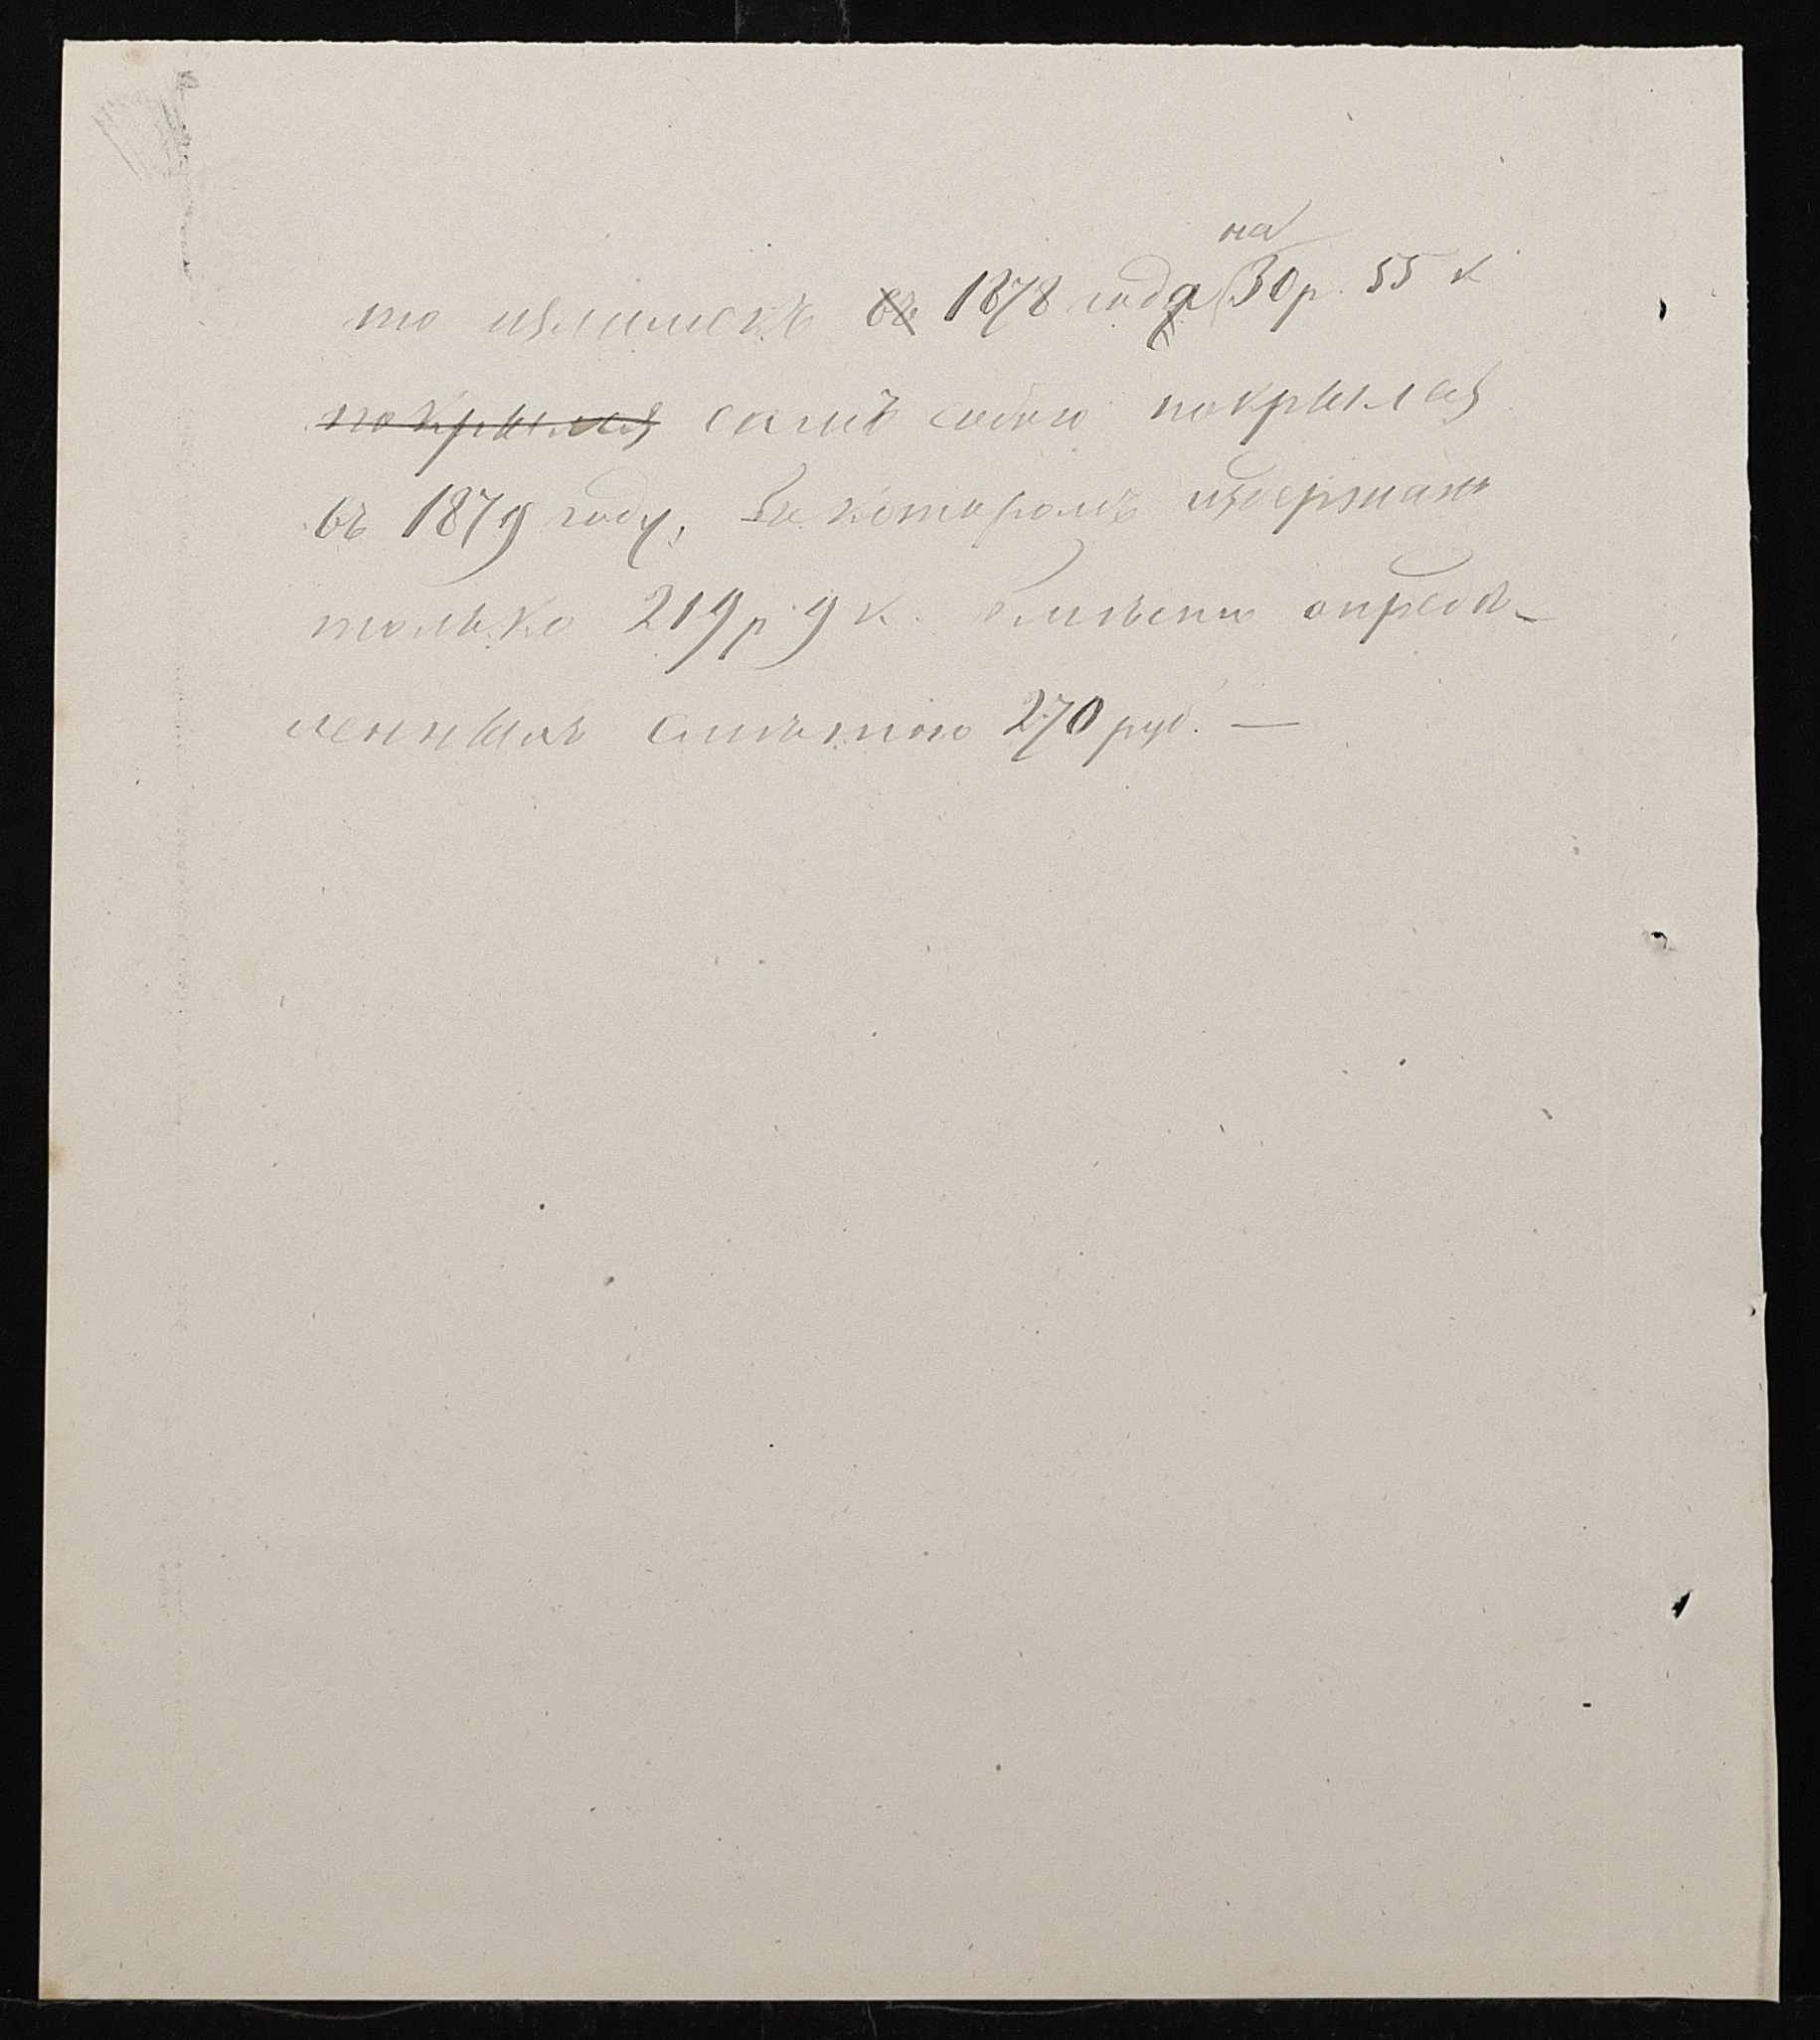 на
то излишекъ въ 1878 года 30 р. 55 к
покрылся самъ собою покрылся
въ 1879 году, въ которомъ издержано
только 219 р 9 к. вмѣсто опредѣ-
ленныхъ смѣтою 270 руб. —